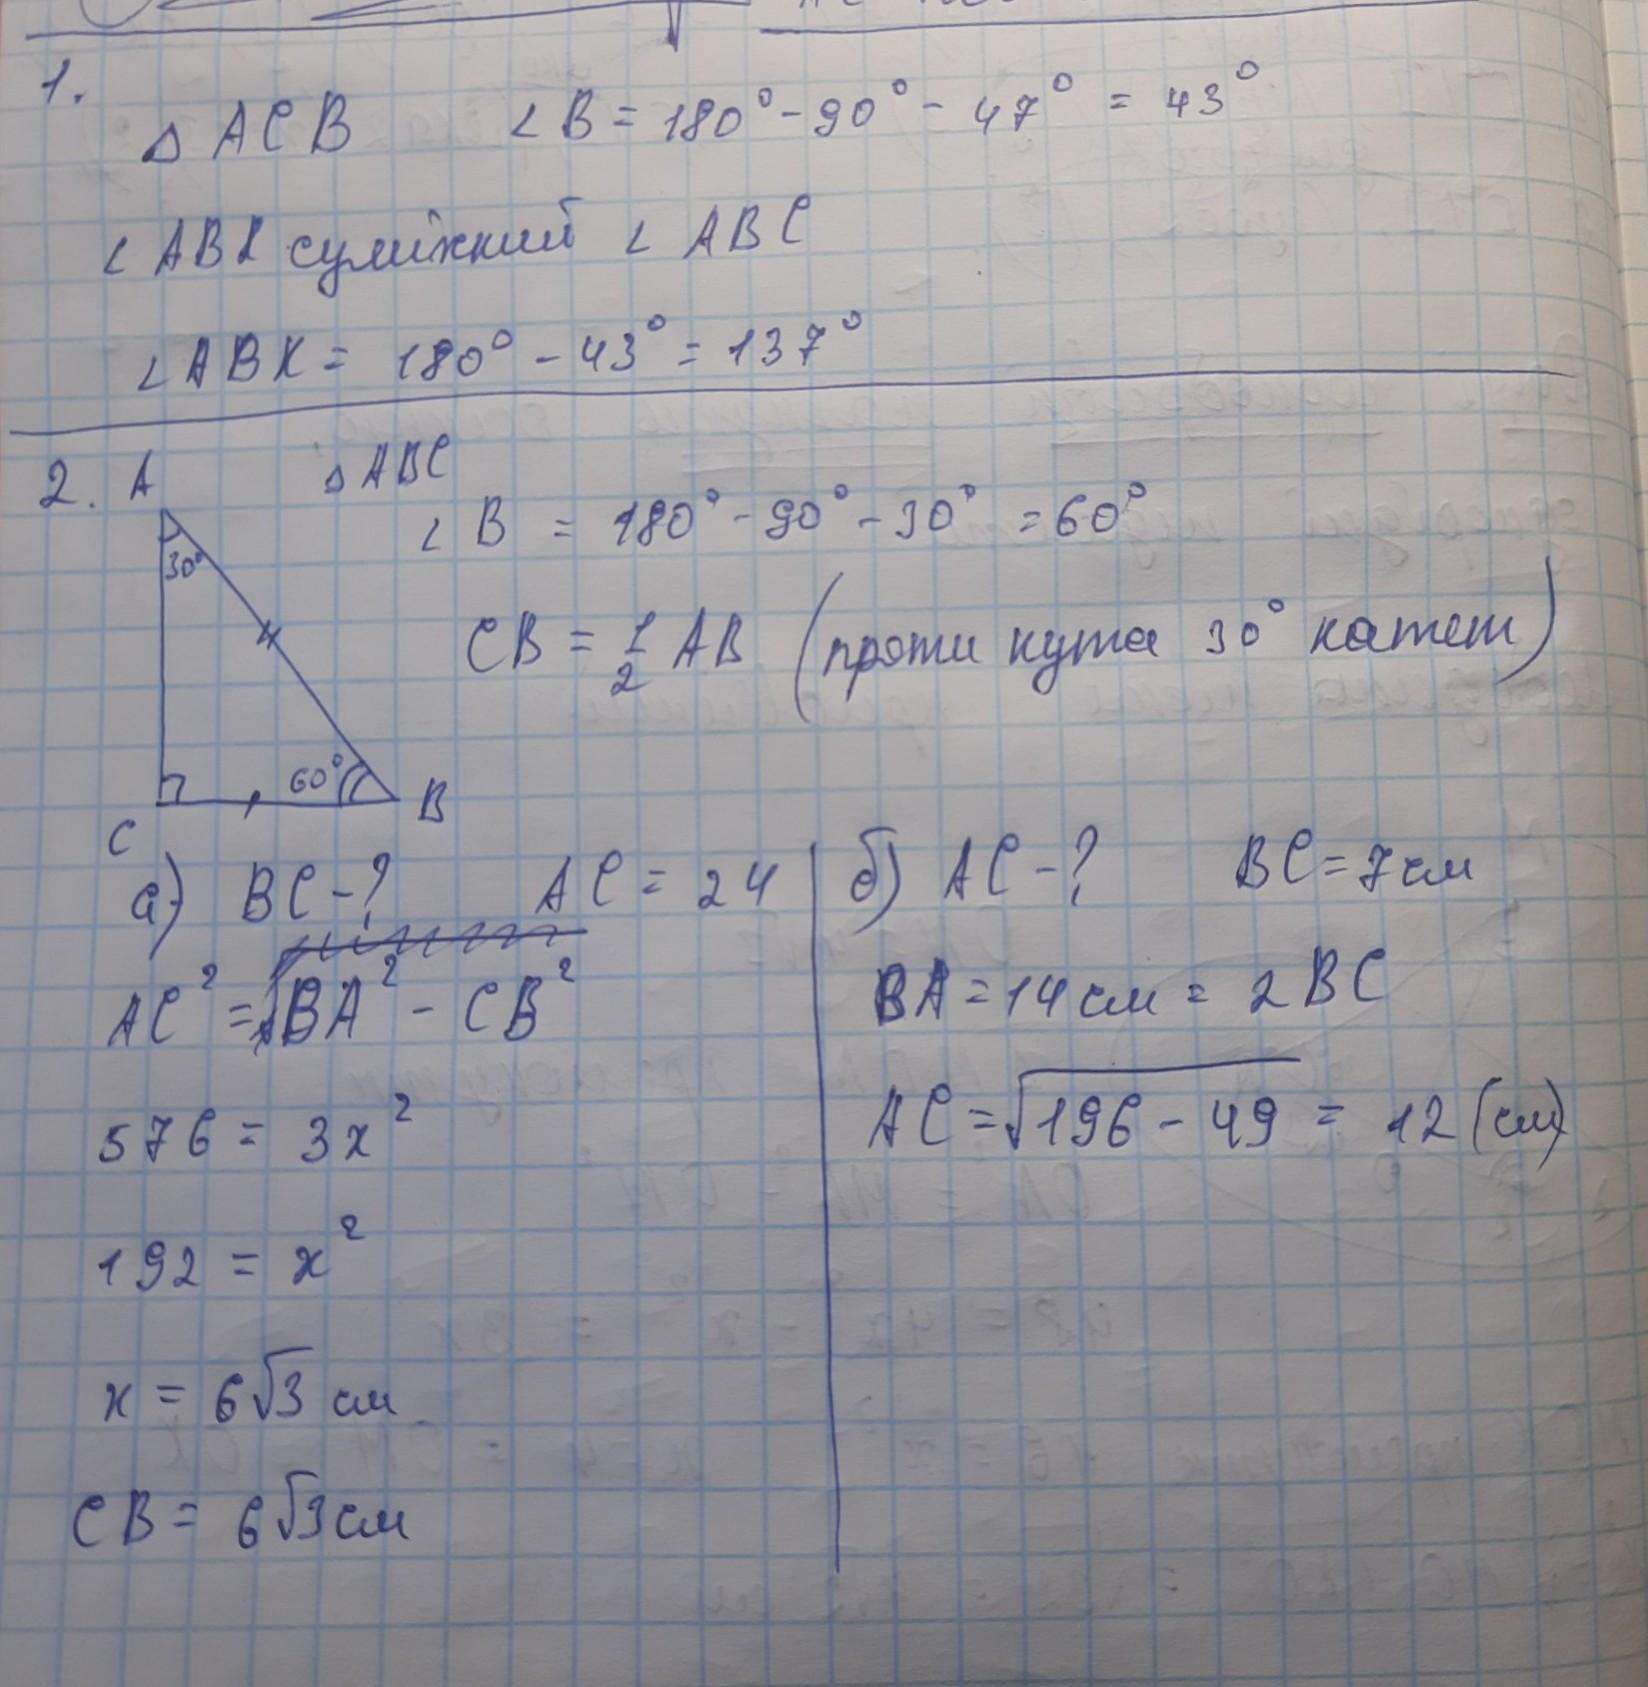 1.
△ ACB ∠B = 180° - 90° - 47° = 43°
∠ABK суміжний ∠ABC
∠ABK = 180° - 43° = 137°
2. A △ABC
∠B = 180° - 90° - 30° = 60°
30°
CB = 1/2 AB (проти кута 30° катет)
60° B
C
а) BC - ? AC = 24
AC² = BA² - CB²
576 = 3x²
192 = x²
x = 6√3 см
CB = 6√3 см
б) AC - ? BC = 7 см
BA = 14 см = 2BC
AC = √196 - 49 = 12 (см)